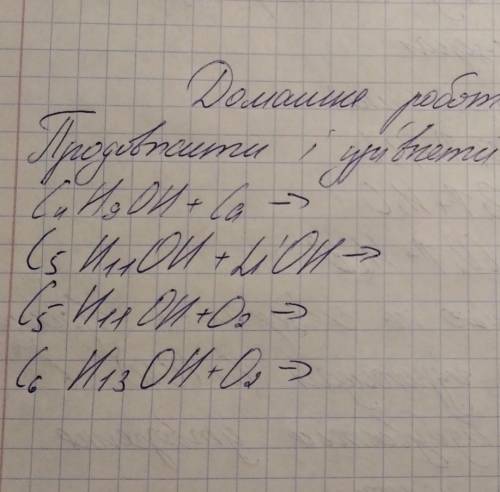 Домашня робот
Продовжити і зрівняти
C₄H₉OH + Ca →
C₅H₁₁OH + LiOH →
C₅H₁₁OH + O₂ →
C₆H₁₃OH + O₂ →